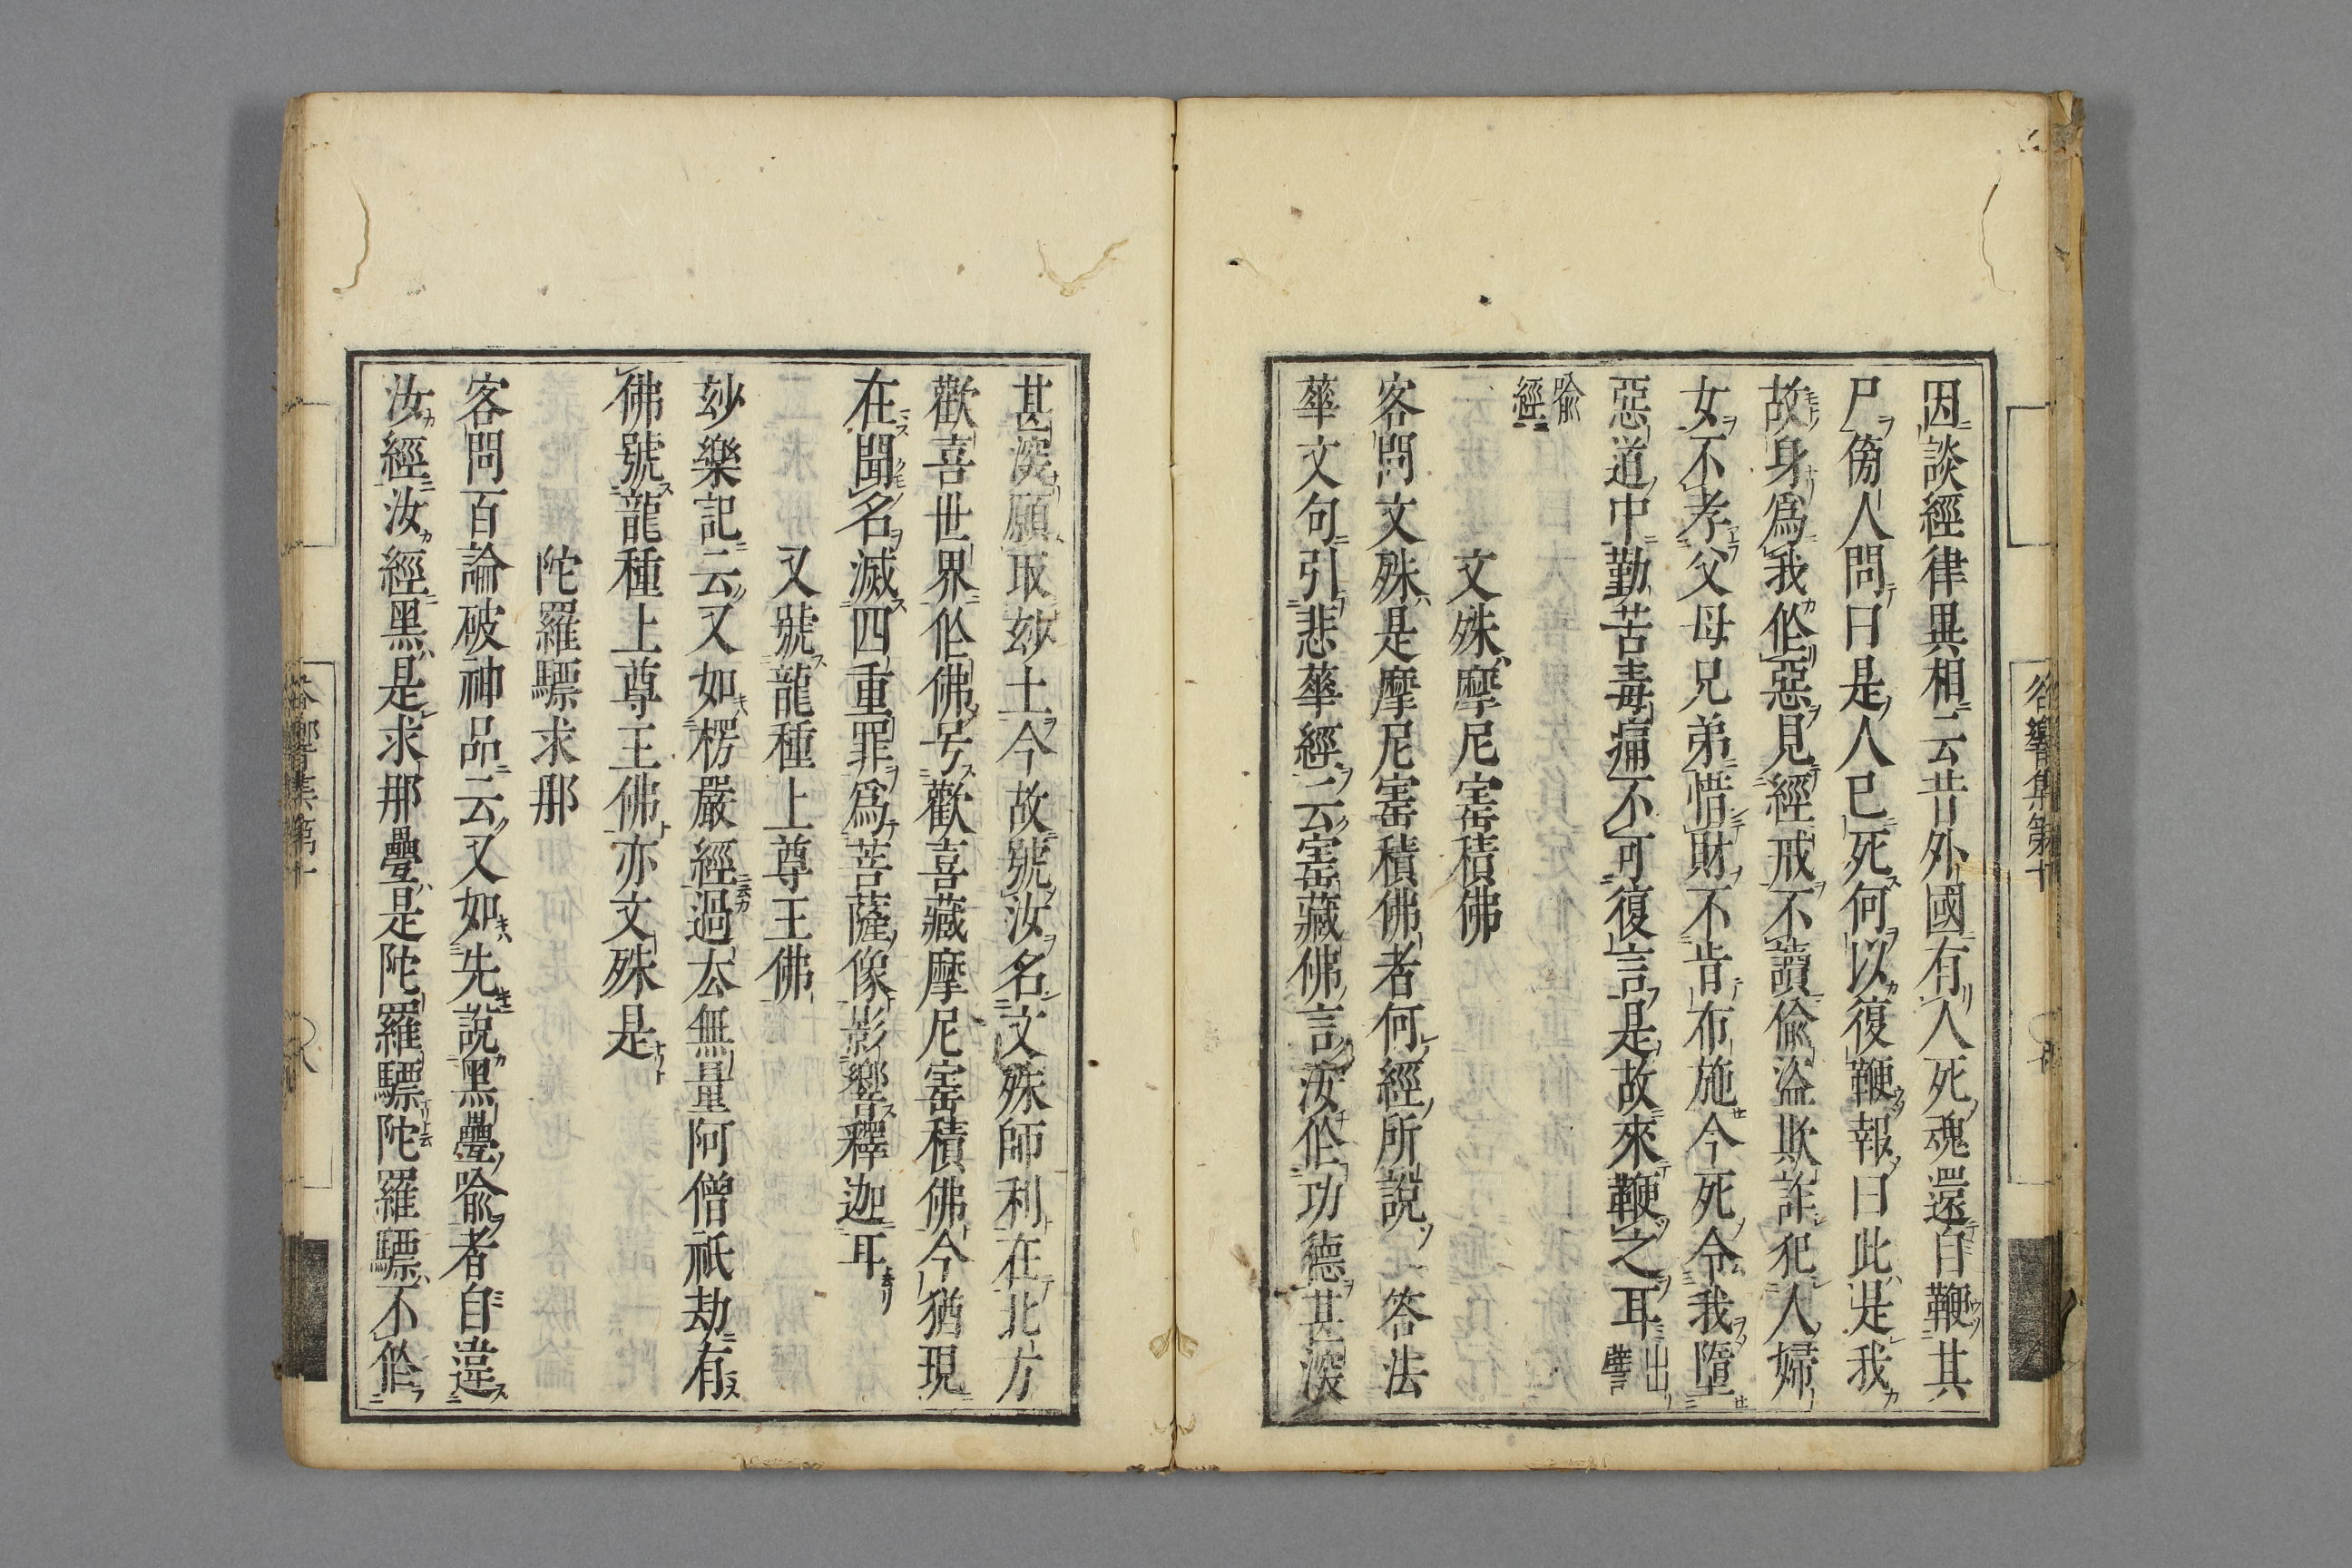 因談經律異相云昔外國有人死魂還自鞭其
尸傍人問曰是人已死何以復鞭報曰此是我
故身爲我作惡見經戒不讀偸盜欺詐犯人婦
女不孝父母兄弟惜財不肯布施今死令我墮
惡道中勤苦毒痛不可復言是故來鞭之耳出譬
喩經
文殊摩尼寳積佛
客問文殊是摩尼寳積佛者何經所說 答法
華文句引悲華經云寳藏佛言汝作功德甚深
甚深願取妙土今故號汝名文殊師利在北方
歡喜世界作佛号歡喜藏摩尼寳積佛今猶現
在聞名滅四重罪爲菩薩像影響釋迦耳
又號龍種上尊王佛
玅樂記云又如楞嚴經過去無量阿僧祇劫有
佛號龍種上尊王佛亦文殊是
陀羅驃求那
客問百論破神品云又如先說黑疊喩者自違
汝經汝經黑是求那疊是陀羅驃陀羅驃不作
谷響集第十